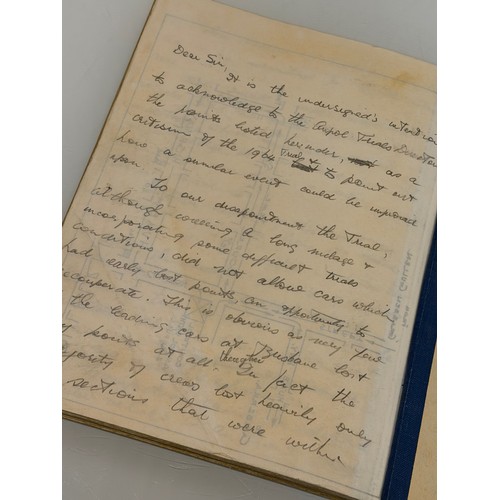 Dear Sir,
It is the undersigned's intention
to acknowledge to the Ampol Trials Director
the points listed hereunder, as a
criticism of the 1964 Trials & to point out
how a similar event could be improved
upon.
To our disapointment the Trial,
although covering a long milage &
incorporating some difficult trials
conditions, did not allow cars which
had early lost points an opportunity to
recouperate. This is obvious as very few
the leading cars at Brisbane lost
points at all. In fact the
majority of crews lost heavily only
sections that were within